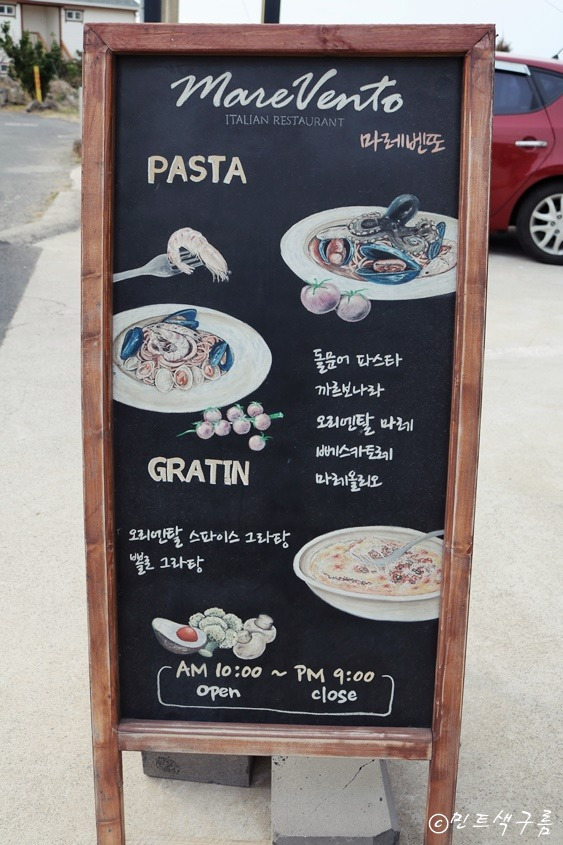 MareVento
ITALIAN RESTAURANT
마레벤또
PASTA
돌문어 파스타
까르보나라
오리엔탈 마레
뻬스카토레
마레올리오
GRATIN
오리엔탈 스파이스 그라탕
뽈로 그라탕
AM 10:00 ~ PM 9:00
open close
©민트색구름